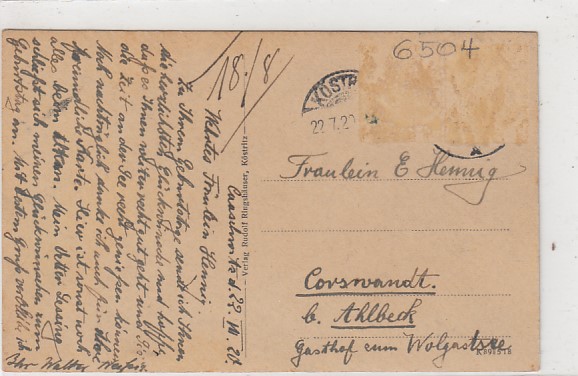 Caaschwitz d. 22. VII. 20
Wertes Fräulein Hennig!
Zu Ihrem Geburtstage sende ich Ihnen
die herzlichsten Glückwünsche und hoffe,
daß es Ihnen weiter recht gut geht und Sie
die Zeit an der See recht genießen können.
Noch nachträglich danke ich auch für Ihre
freundliche Karte. Hier ist sonst noch
alles beim Alten. Mein Vetter
schließt sich meinen Glückwünschen zum
Geburtstag an. Mit besten Gruß verbleibe ich
Ihr Walter
18./8
6504
KÖSTR
22.7.20
Verlag Rudolf Ringelhäuser, Köstritz
Fräulein E Hennig
Corswandt.
b. Ahlbeck
Gasthof zum Wolgastsee
K 898518